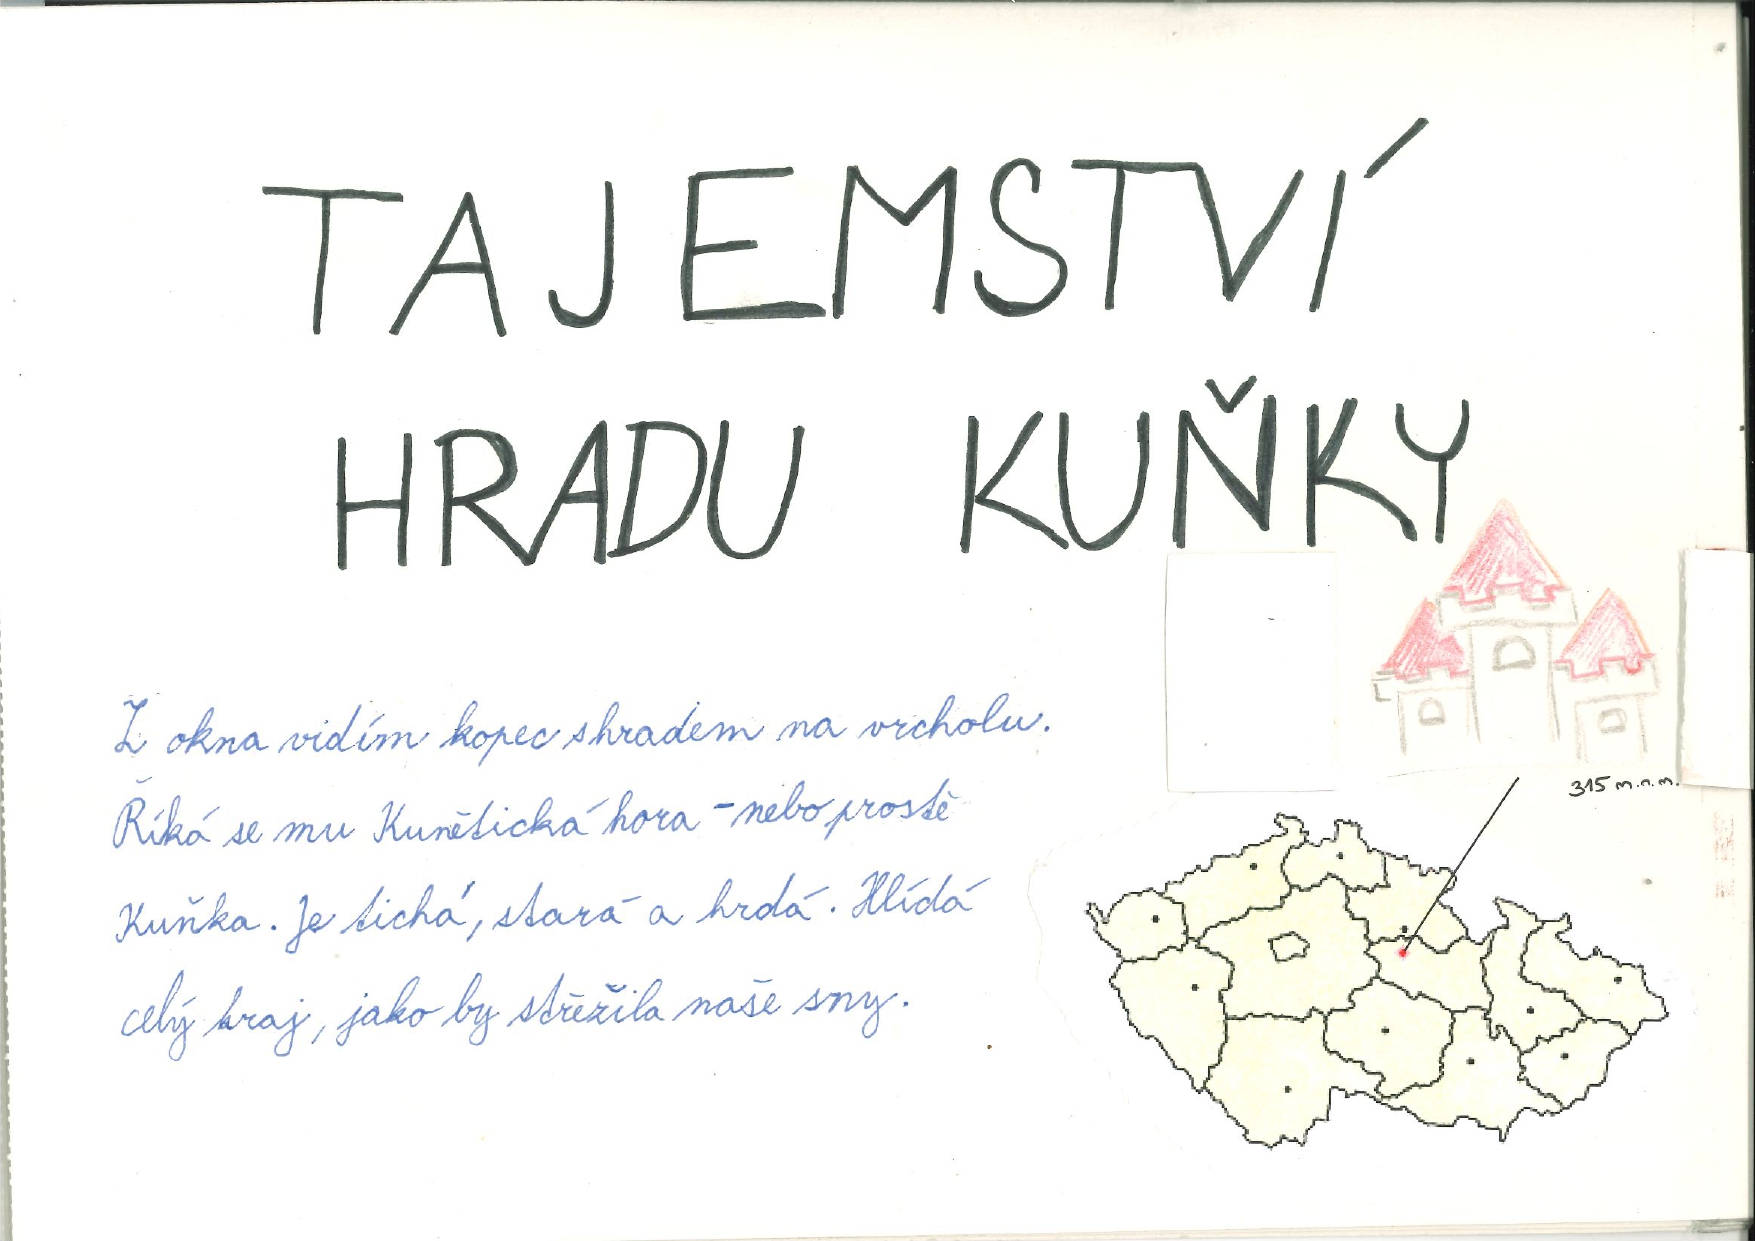 TAJEMSTVÍ
HRADU KUŇKY
Z okna vidím kopec s hradem na vrcholu.
Říká se mu Kunětická hora - nebo prostě
Kuňka. Je tichá, stará a hrdá. Hlídá
celý kraj, jako by střežila naše sny.
315 m.n.m.